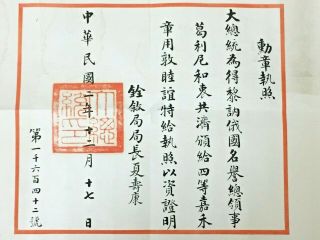 勳章執照
大總統為得黎訥俄國名譽總領事
葛利尼和衷共濟頒給四等嘉禾
章用敦睦誼特給執照以資證明
銓敘局局長夏壽康
中華民國二年十二月十七日
第一千六百四十二號